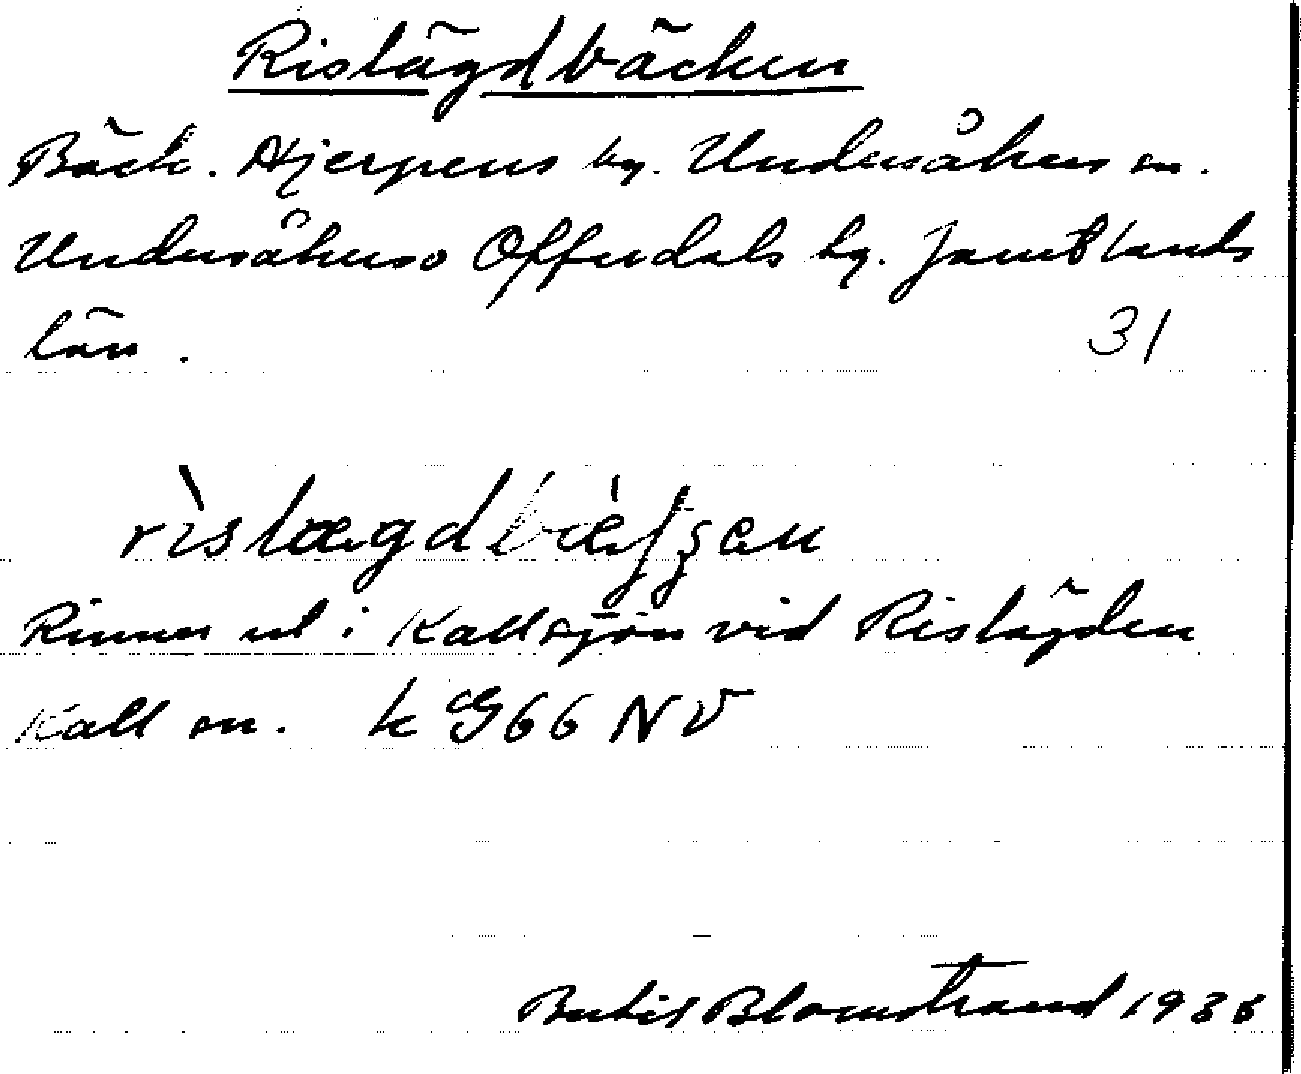 Rislägdbäcken
Bäck. Hjerpens by. Undersåkers sn.
Undersåkers o Offerdals hg. Jämtlands
län. 31
rìslægdbæ̀ʃʒen
Rinner ut i Kallsjön vid Rislägden
Kall sn. k G66 NV
Bertil Blomstrand 1936